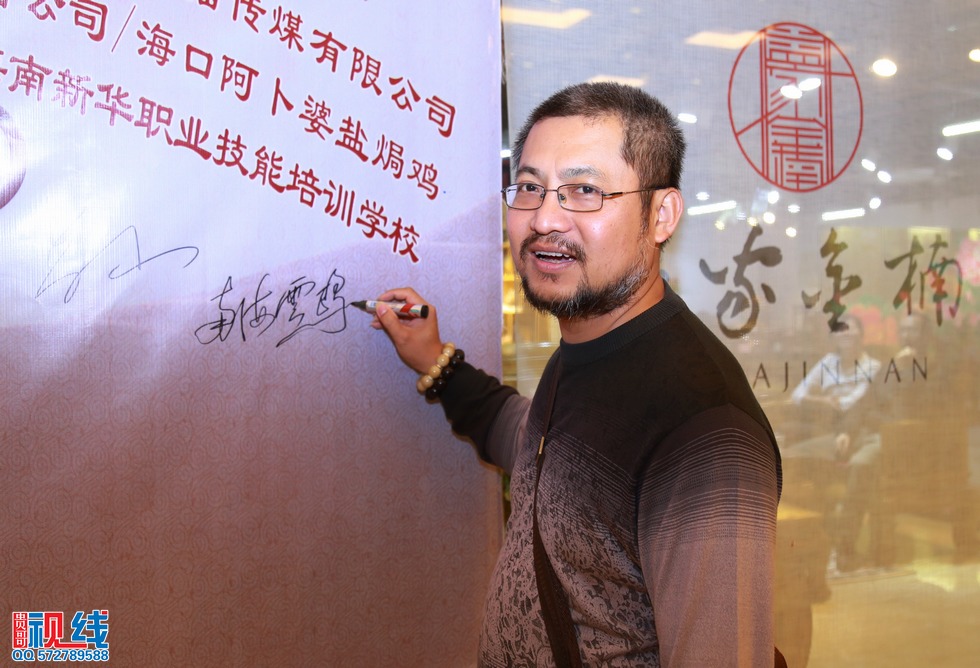 传媒有限公司
公司/海口阿卜婆盐焗鸡
南新华职业技能培训学校
南海雲鸿
家金楠
AJINNAN
贵哥
视线
QQ 572789588